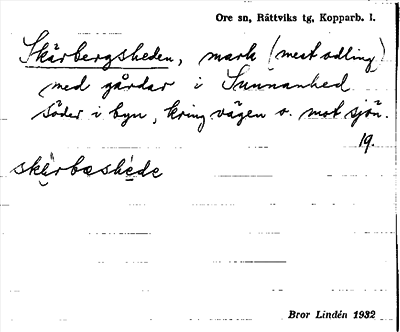 Ore sn, Rättviks tg, Kopparb. l.
Skärbergsheden, mark (mest odling)
med gårdar i Sunnanhed
söder i byn, kring vägen o. mot sjön.
19.
skärbæshède
Bror Lindén 1932